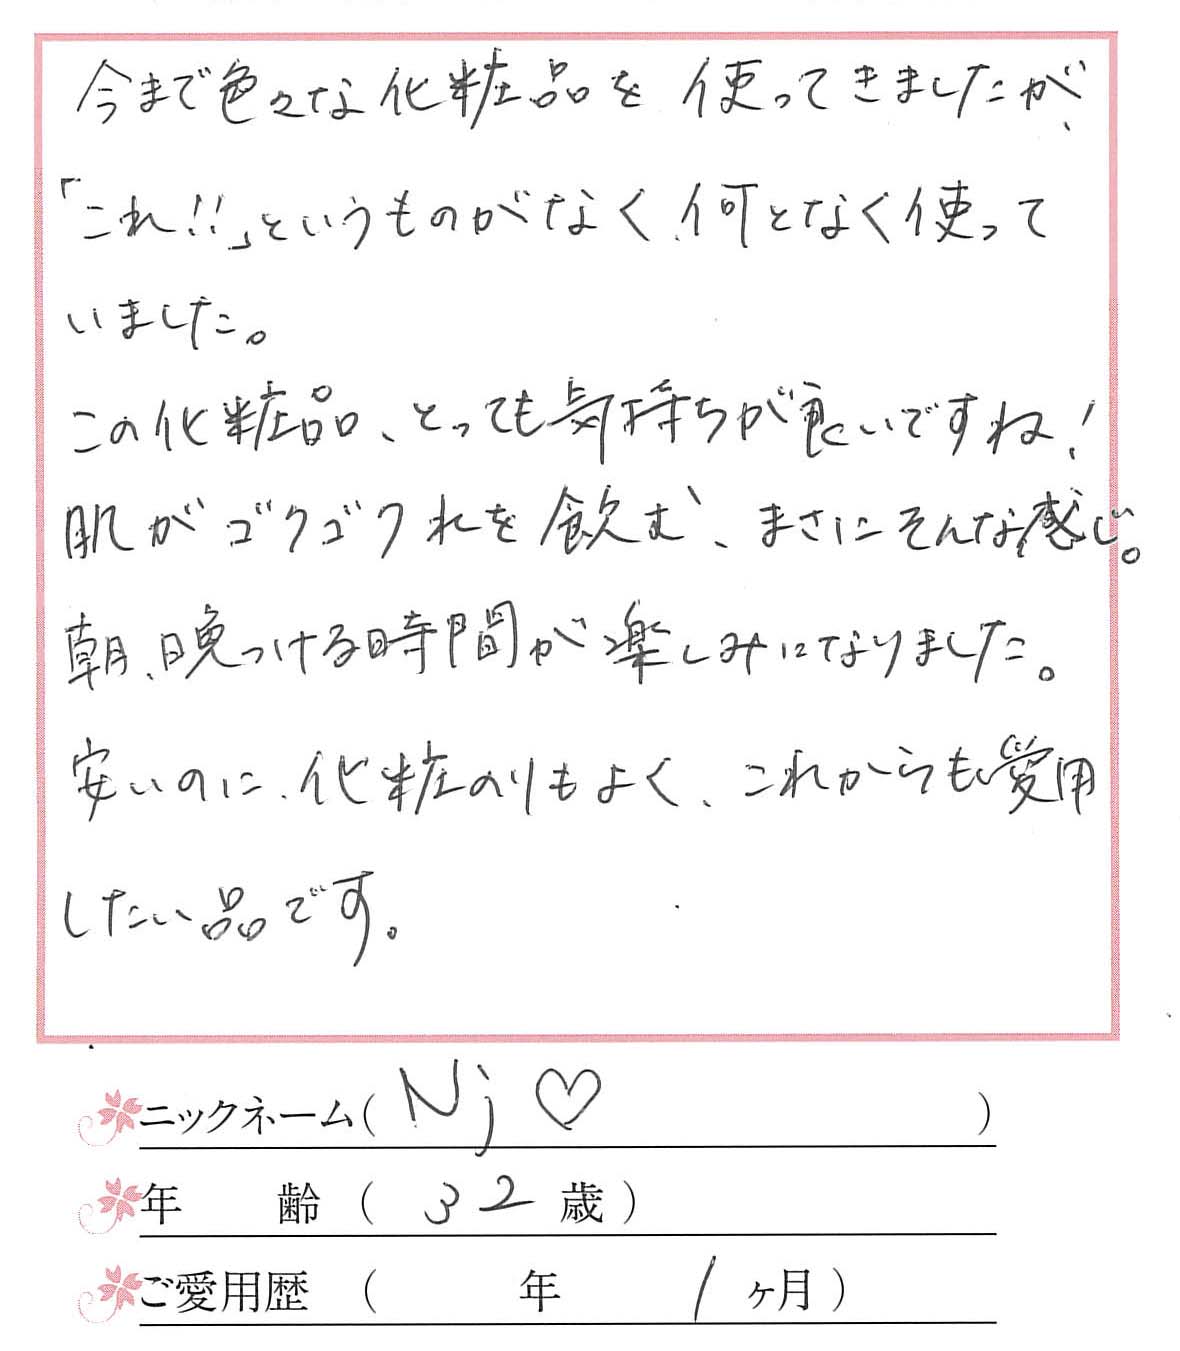 今まで色々な化粧品を使ってきましたが、
「これ!!」というものがなく、何となく使って
いました。
この化粧品、とっても気持ちが良いですね!
肌がゴクゴク水を飲む、まさにそんな感じ。
朝、晩つける時間が楽しみになりました。
安いのに、化粧のりもよく、これからも愛用
したい品です。
ニックネーム( Nj ♡ )
年 齢 ( 32 歳 )
ご愛用歴 ( 年 1 ヶ月 )